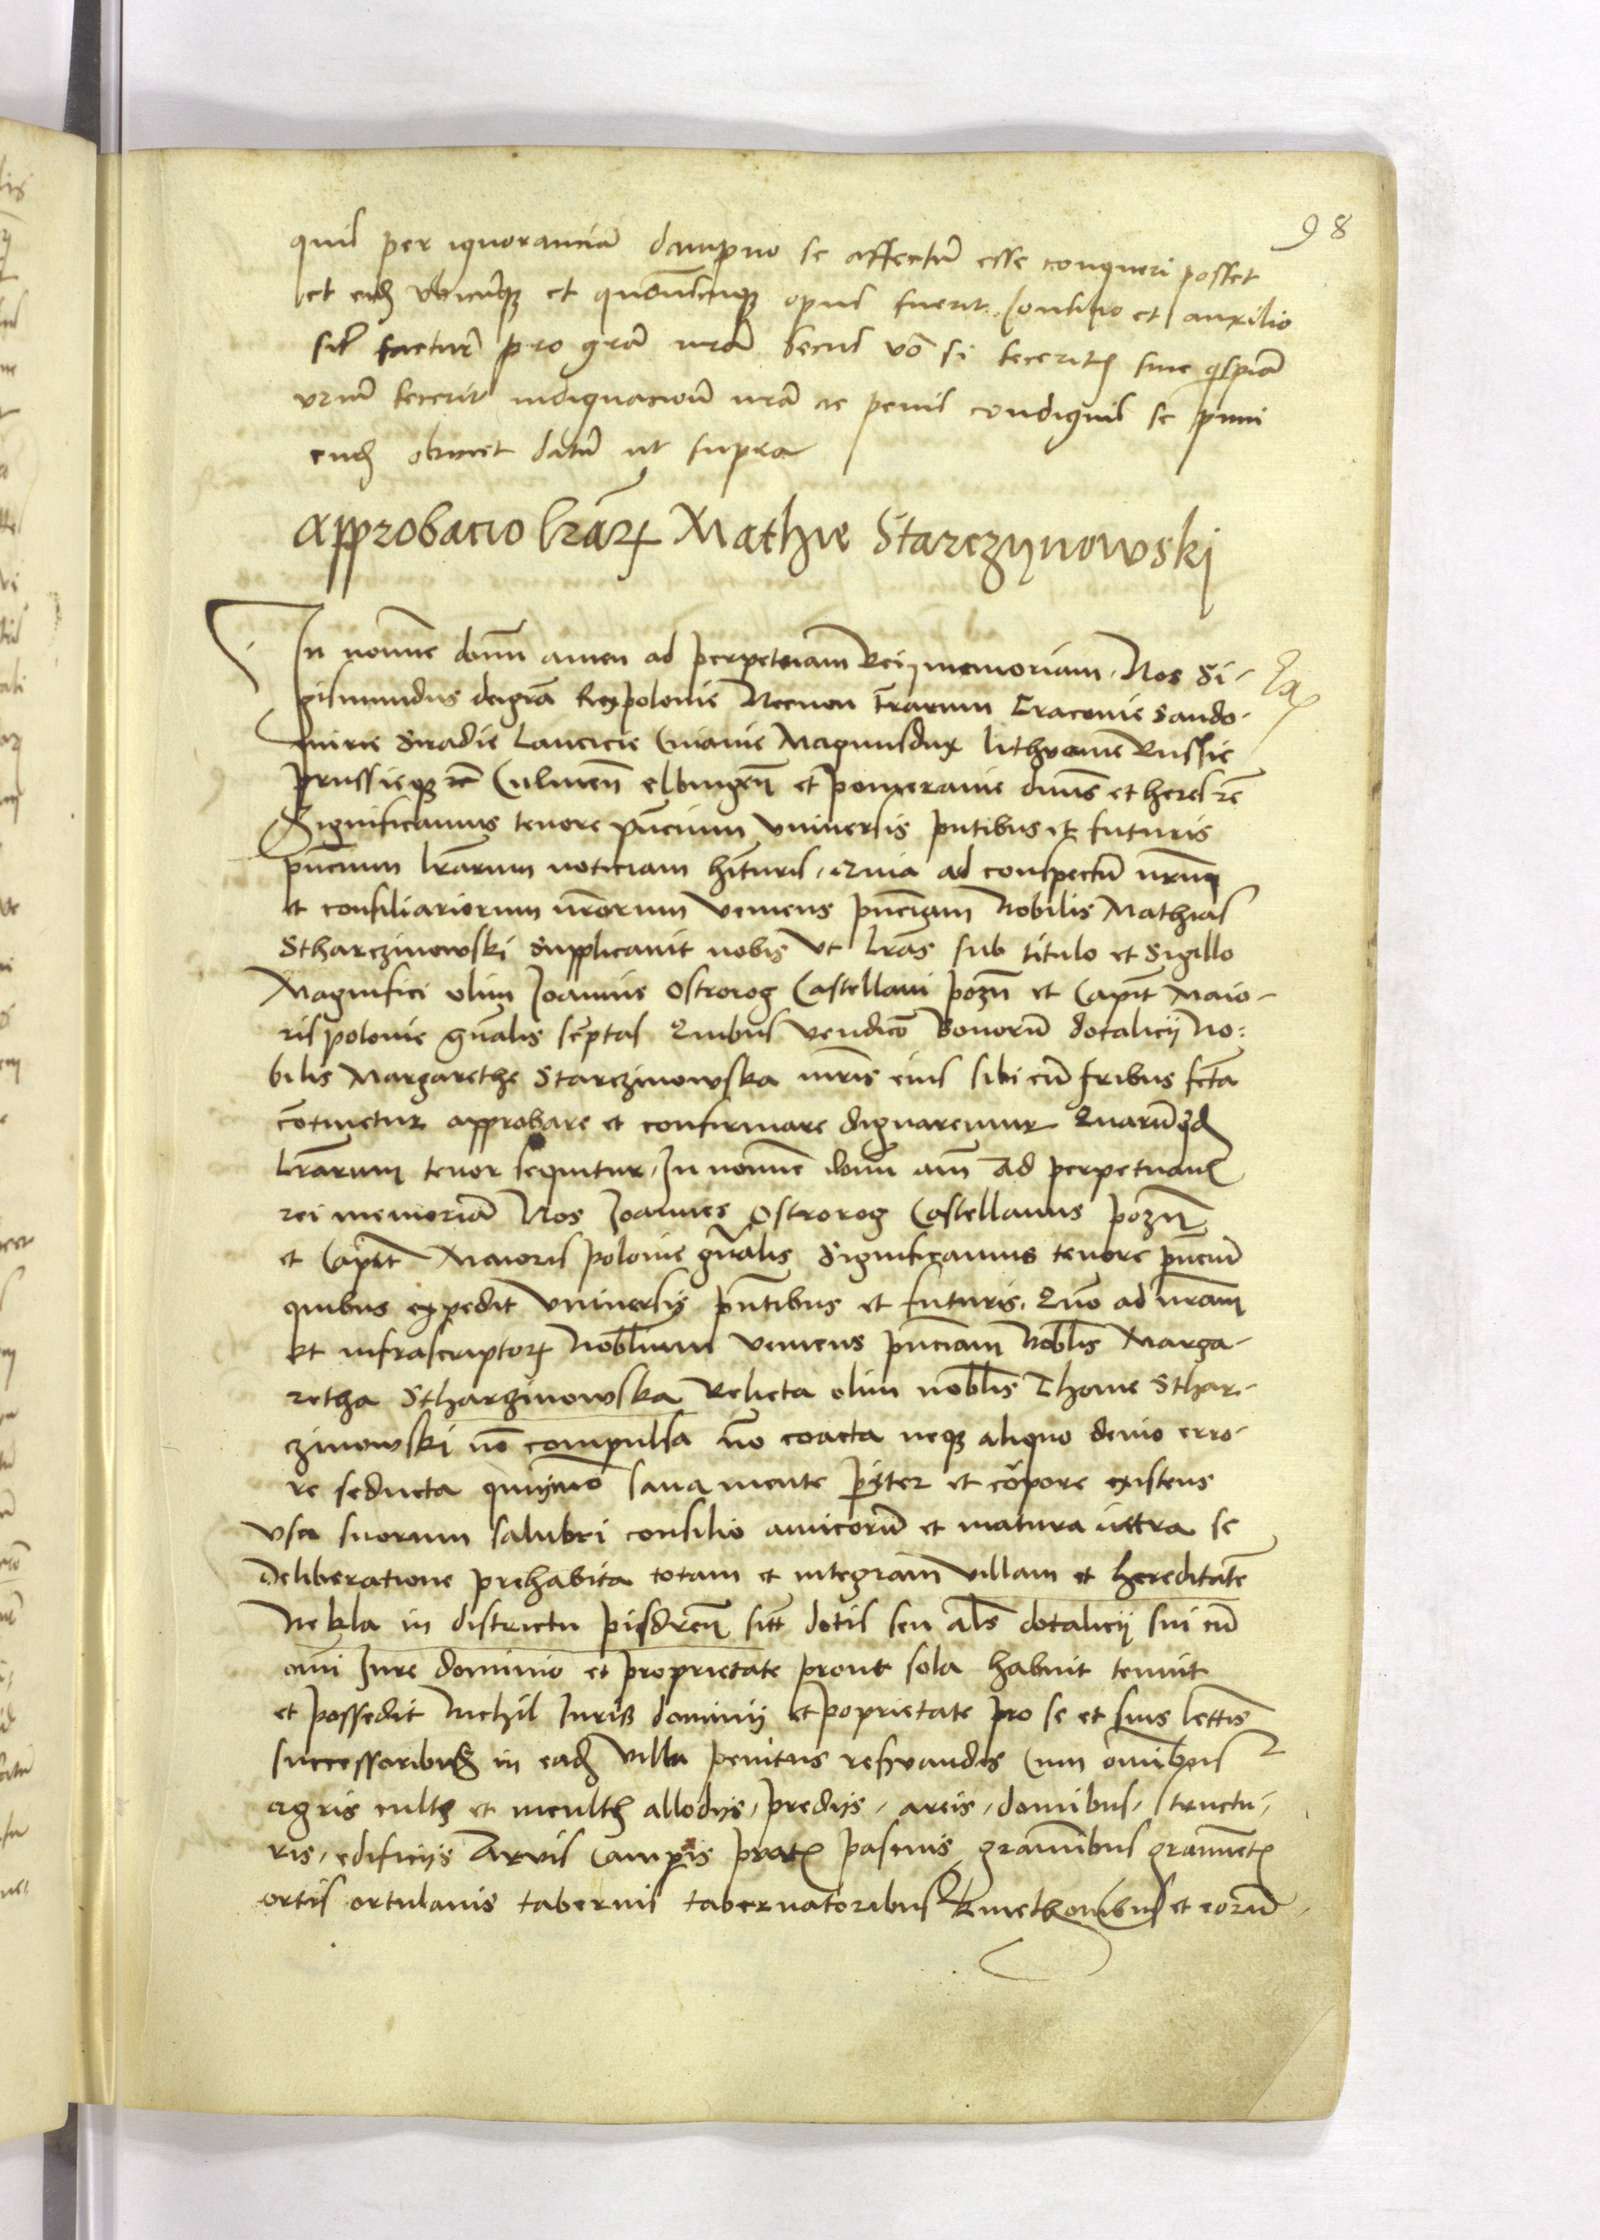 98
quis per ignoranciā dampno se affectū esse conqueri posset
et eidē ubicūqȝ et quōmōcūqȝ opus fuerit consilio et auxilio
sitis factūri pro grā nrā secus vō si feceritis sive qispiā
vrūm fecerit indignacionē nrā ac penis condignis se puni
endū obiicet datū ut supra
Approbacio lrārꝝ Mathie Starczynowski
In nomine domī amen ad perpetuam Rei memoriam. Nos Si-
gismundus dei grā Rex polonie Necnon t̄rarum Cracovie Sando-
mirie Siradie Lancicie Cuiavie Magnusdux lithvanie Russie
prussieqȝ ac Culmeñ elbingeñ et pomeranie dnūs et heres rc̄
Significamus tenore pn̄cium vniversis pn̄tibus et futuris
pn̄cium lrārum noticiam hīturis, Quia ad conspectū nrūm
et consiliariorum nrōrum veniens pn̄ciam Nobilis Mathias
Stharczinowski Supplicavit nobis vt lrās sub titulo et Sigillo
Magnifici olim Joannis Ostrorog Castellani pozn̄ et Capit̄ Maio-
ris polonie gn̄alis sc̄ptas Quibus vendicō Bonorū dotalicij No-
bilis Margarethe Starczinowska mr̄is eius sibi cū fr̄ibus fct̄a
cōtinetur approbare et confirmare dignaremur Quarūqd̄
lrārum tenor sequitur, In nomine domī am̄ Ad perpetuam
rei memoriā Nos Joannes Ostrorog Castellanus pozn̄
et Capit̄ Maioris polonie gn̄alis Significamus tenore pn̄ciū
quibus expedit vniversis pn̄tibus et futuris. Quō ad nrām
et infrascriptorꝝ Nobīlium veniens pn̄ciam Nobīlis Marga-
retha Stharzinowska Relicta olim nobīlis Thome Sthar-
czinowski nō compulsa nō coacta neqȝ aliquo devio erro-
re seducta quiȳmo sana mente pīter et cōrpore existens
usa suorum salubri consilio amicorū et matura inttra se
deliberatione prehabita totam et integram villam et hereditatē
Nekla in districtu pisdreñ sitt̄ dotis seu al̄s dotalicij sui cū
om̄i Jure dominio et proprietate prout sola habuit tenuit
et possedit Nichil Juris dominij et poprietate pro se et suis lttīs
successoribus in eadē villa penitus reservandis Cum om̄ibus
agris cultis et incultis allodijs, predijs, areis, domibus, structu-
ris, edificijs Arvis Campis pratis pascuis graminibus gramētis
ortis ortulanis tabernis tabernatoribus kmethonibus et eorū